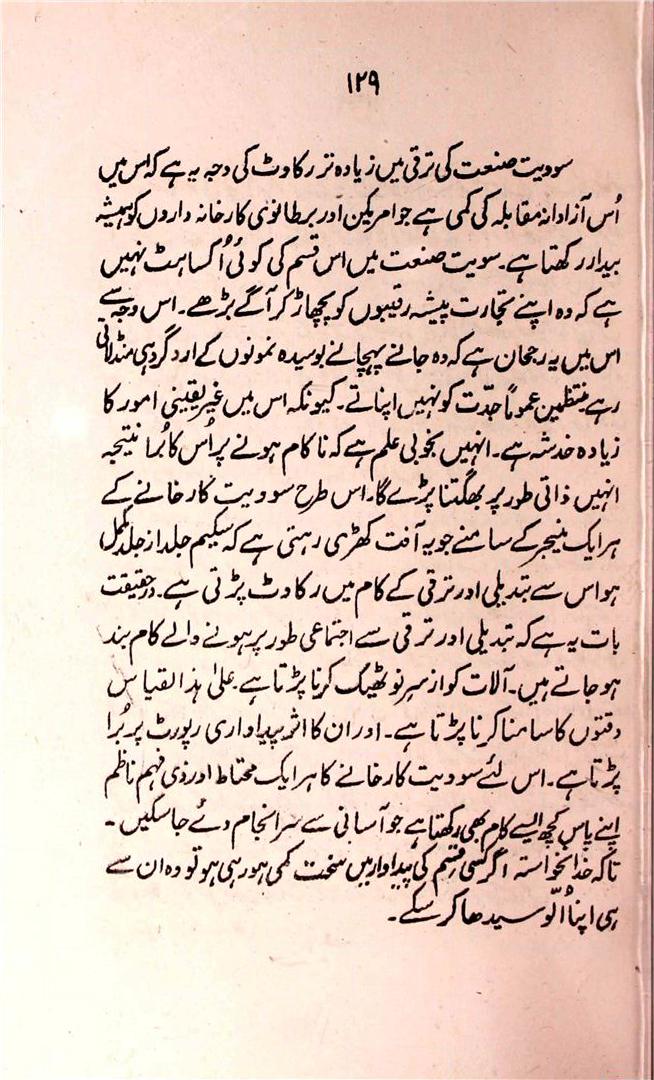 ۱۲۹
سوویت صنعت کی ترقی میں زیادہ تر رکاوٹ کی وجہ یہ ہے کہ اس میں
اُس آزادانہ مقابلہ کی کمی ہے جو امریکن اور برطانوی کارخانہ داروں کو ہمیشہ
بیدار رکھتا ہے۔ سویت صنعت میں اس قسم کی کوئی اُکساہٹ نہیں
ہے کہ وہ اپنے تجارت پیشہ رقیبوں کو پچھاڑ کر آگے بڑھے۔ اس وجہ سے
اس میں یہ رجحان ہے کہ وہ جانے پہچانے بوسیدہ نمونوں کے ارد گرد ہی منڈلاتی
رہے منتظمین عموماً جدّت کو نہیں اپناتے۔ کیونکہ اس میں غیر یقینی امور کا
زیادہ خدشہ ہے۔ انہیں بخوبی علم ہے کہ ناکام ہونے پر اُس کا بُرا نتیجہ
انہیں ذاتی طور پر بھگتنا پڑے گا۔ اس طرح سوویت کارخانے کے
ہر ایک منیجر کے سامنے جو یہ آفت کھڑی رہتی ہے کہ سکیم جلد از جلد مکمل
ہو اس سے تبدیلی اور ترقی کے کام میں رکاوٹ پڑتی ہے۔ درحقیقت
بات یہ ہے کہ تبدیلی اور ترقی سے اجتماعی طور پر ہونے والے کام بند
ہو جاتے ہیں۔ آلات کو از سرِ نو ٹھیک کرنا پڑتا ہے علیٰ ہذا القیاس
دقتوں کا سامنا کرنا پڑتا ہے۔ اور ان کا اثر پیداواری رپورٹ پر بُرا
پڑتا ہے۔ اس لئے سوویت کارخانے کا ہر ایک محتاط اور ذی فہم ناظم
اپنے پاس کچھ ایسے کام بھی رکھتا ہے جو آسانی سے سرانجام دئے جا سکیں۔
تاکہ خدانخواستہ اگر کسی قسم کی پیداوار میں سخت کمی ہو رہی ہو تو وہ ان سے
ہی اپنا اُلّو سیدھا کر سکے۔